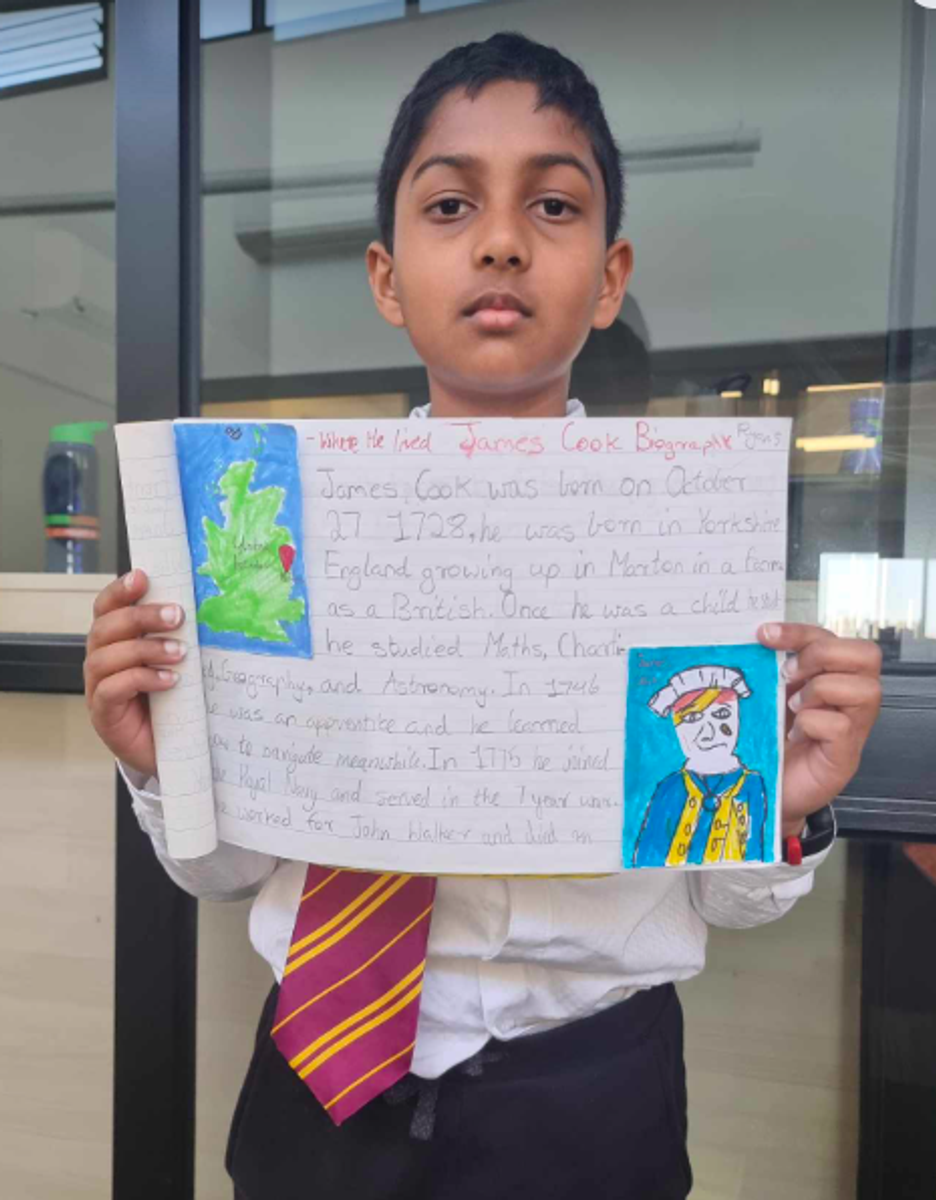 - Where He lived James Cook Biography
James Cook was born on October
27 1728, he was born in Yorkshire
England growing up in Marton in a farm
as a British. Once he was a child he
he studied Maths,
Geography, and Astronomy. In 1746
he was an apprentice and he learned
how to navigate meanwhile. In 1775 he joined
the Royal Navy and served in the 7 year war.
He worked for John Walker and did in